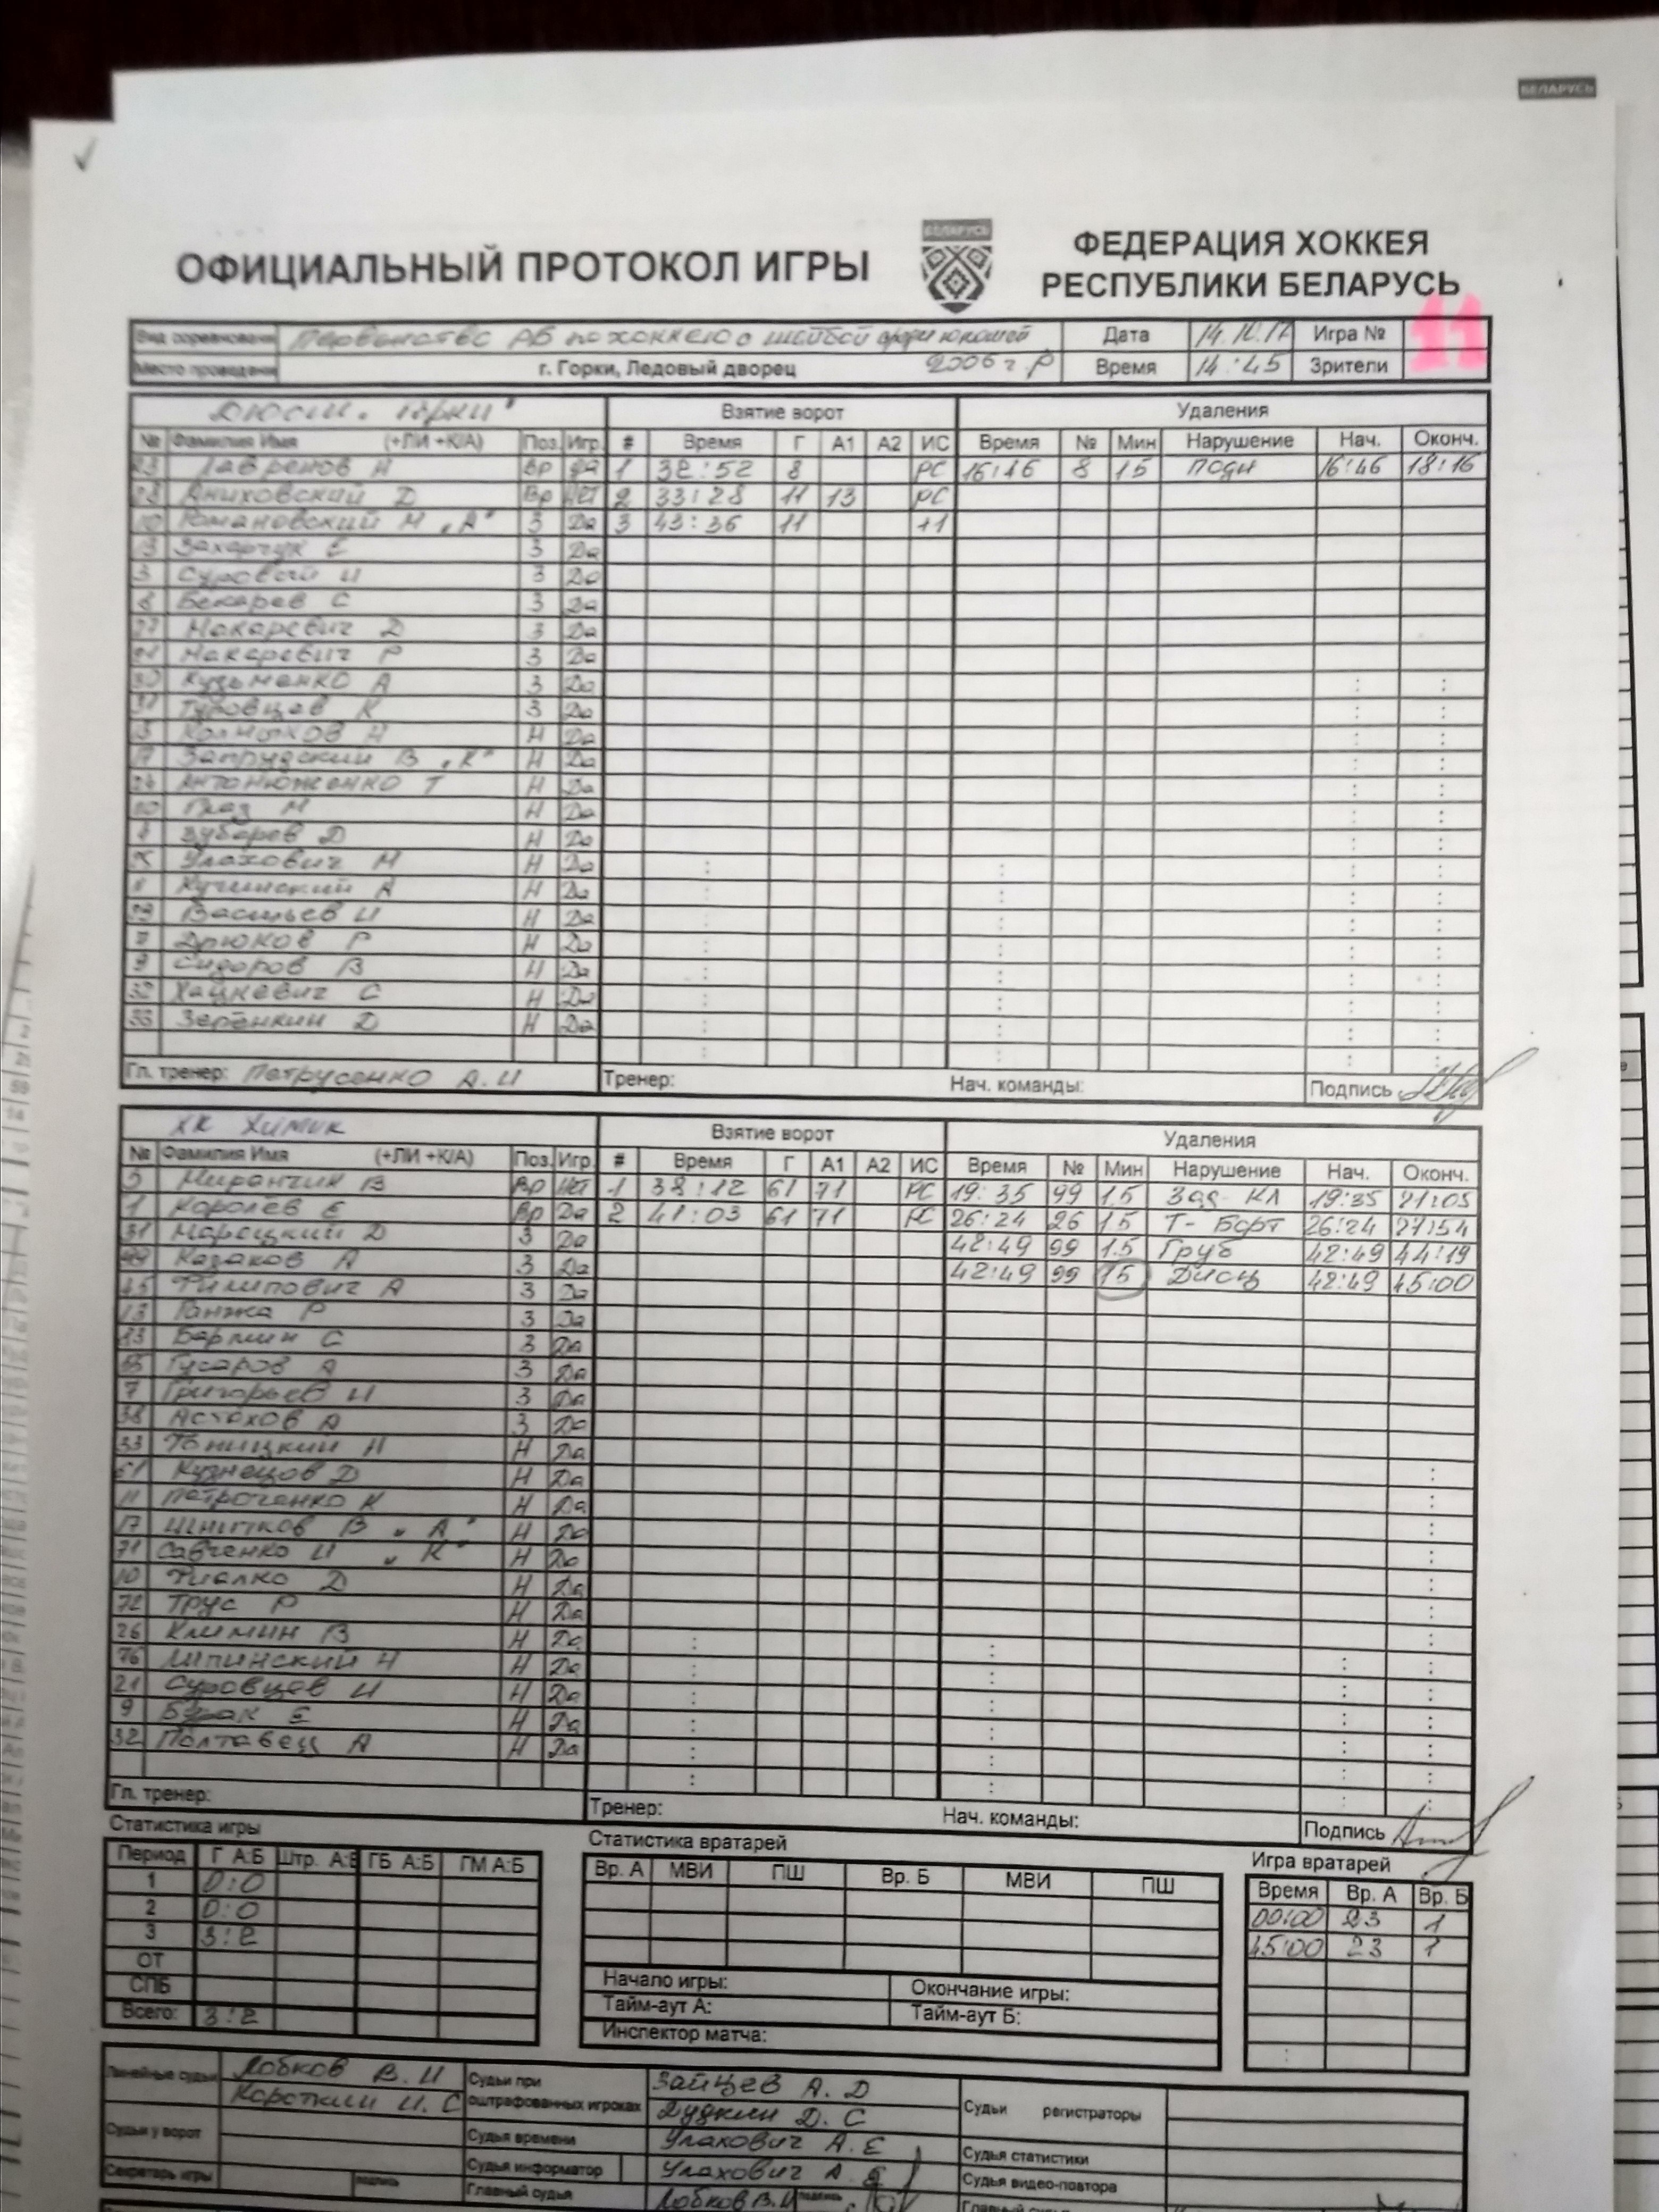 БЕЛАРУСЬ
ОФИЦИАЛЬНЫЙ ПРОТОКОЛ ИГРЫ
БЕЛАРУСЬ
ФЕДЕРАЦИЯ ХОККЕЯ
РЕСПУБЛИКИ БЕЛАРУСЬ
Вид соревнования Первенство РБ по хоккею с шайбой среди юношей Дата 14.10.17 Игра № 11
Место проведения г. Горки, Ледовый дворец 2006 г.р Время 14:45 Зрители
Взятие ворот Удаления
№ Фамилия Имя (+ЛИ +К/А) Поз. Игр. # Время Г А1 А2 ИС Время № Мин Нарушение Нач. Оконч.
23 Лавренов Н Вр Да 1 32:52 8 РС 16:46 8 1.5 Подн 16:46 18:16
Аниховский Д Вр Нет 2 33:28 11 13 РС
10 Романовский М „А" З Да 3 43:36 11 +1
Захарчук Е З Да
3 Суровый И З Да
8 Бекарев С З Да
Макаревич Д З Да
Макаревич Р З Да
Кузьменко А З Да
Туровцев К З Да
Н Да
Запрудский В „К" Н Да
Антонюженко Т Н Да
Граз М Н Да
Зубарев Д Н Да
Улахович М Н Да
Кучинский А Н Да
Васильев И Н Да
Дрюков Р Н Да
Сидоров В Н Да
32 Хацкевич С Н Да
33 Зеренкин Д Н Да
Гл. тренер: Петрусенко А.И Тренер: Нач. команды: Подпись
ХК Химик Взятие ворот Удаления
№ Фамилия Имя (+ЛИ +К/А) Поз. Игр. # Время Г А1 А2 ИС Время № Мин Нарушение Нач. Оконч.
Миранчик В Вр Нет 1 38:12 61 71 РС 19:35 99 1.5 Зад-Кл 19:35 21:05
1 Королев Е Вр Да 2 41:03 61 71 РС 26:24 26 1.5 Т-Борт 26:24 27:54
31 Марецкий Д З Да 42:49 99 1.5 Груб 42:49 44:19
Казаков А З Да 42:49 99 15 Дисц 42:49 45:00
Филипович А З Да
13 Ганжа Р З Да
Бармин С З Да
Гусаров А З Да
7 Григорьев И З Да
38 Астахов А З Да
33 Н Да
61 Кузнецов Д Н Да
11 Петроченко К Н Да
17 Шнитков В „А" Н Да
71 Савченко И „К" Н Да
10 Фиалко Д Н Да
72 Трус Р Н Да
26 Климин В Н Да
76 Липинский Н Н Да
21 Суровцев И Н Да
9 Бурак Е Н Да
32 Полтавец А Н Да
Гл. тренер: Тренер: Нач. команды: Подпись
Статистика игры Статистика вратарей Игра вратарей
Период Г А:Б Штр. А:Б ГБ А:Б ГМ А:Б Вр. А МВИ ПШ Вр. Б МВИ ПШ Время Вр. А Вр. Б
1 0:0 00:00 23 1
2 0:0 45:00 23 1
3 3:2
ОТ
СПБ Начало игры: Окончание игры:
Всего: 3:2 Тайм-аут А: Тайм-аут Б:
Инспектор матча:
Линейные судьи Лобков В.И Судьи при оштрафованных игроках Зайцев А.Д Судьи регистраторы
Короткий И.С Дудкин Д.С
Судьи у ворот Судья времени Улахович А.Е Судья статистики
Секретарь игры подпись Судья информатор Улахович А.Е Судья видео-повтора
Главный судья Лобков В.И подпись